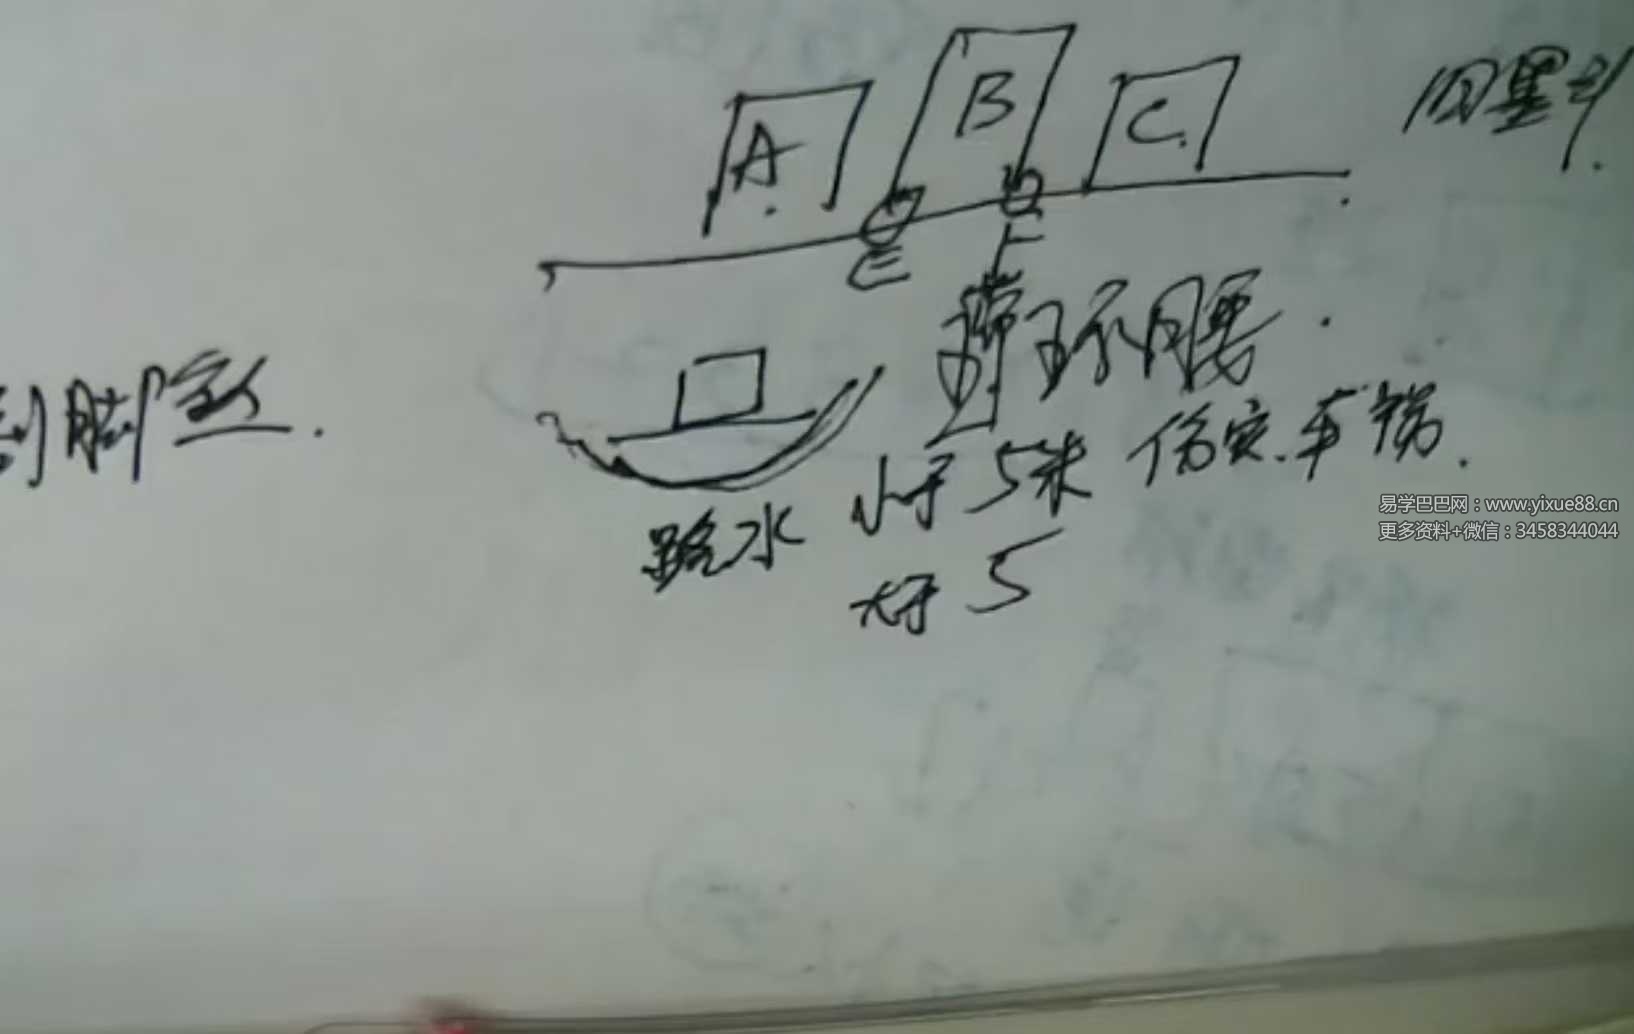 A
B
C
E
F
带环腰
割脚煞
路水
小于5米
伤灾.车祸.
大于5
易学巴巴网：www.yixue88.cn
更多资料+微信：3458344044